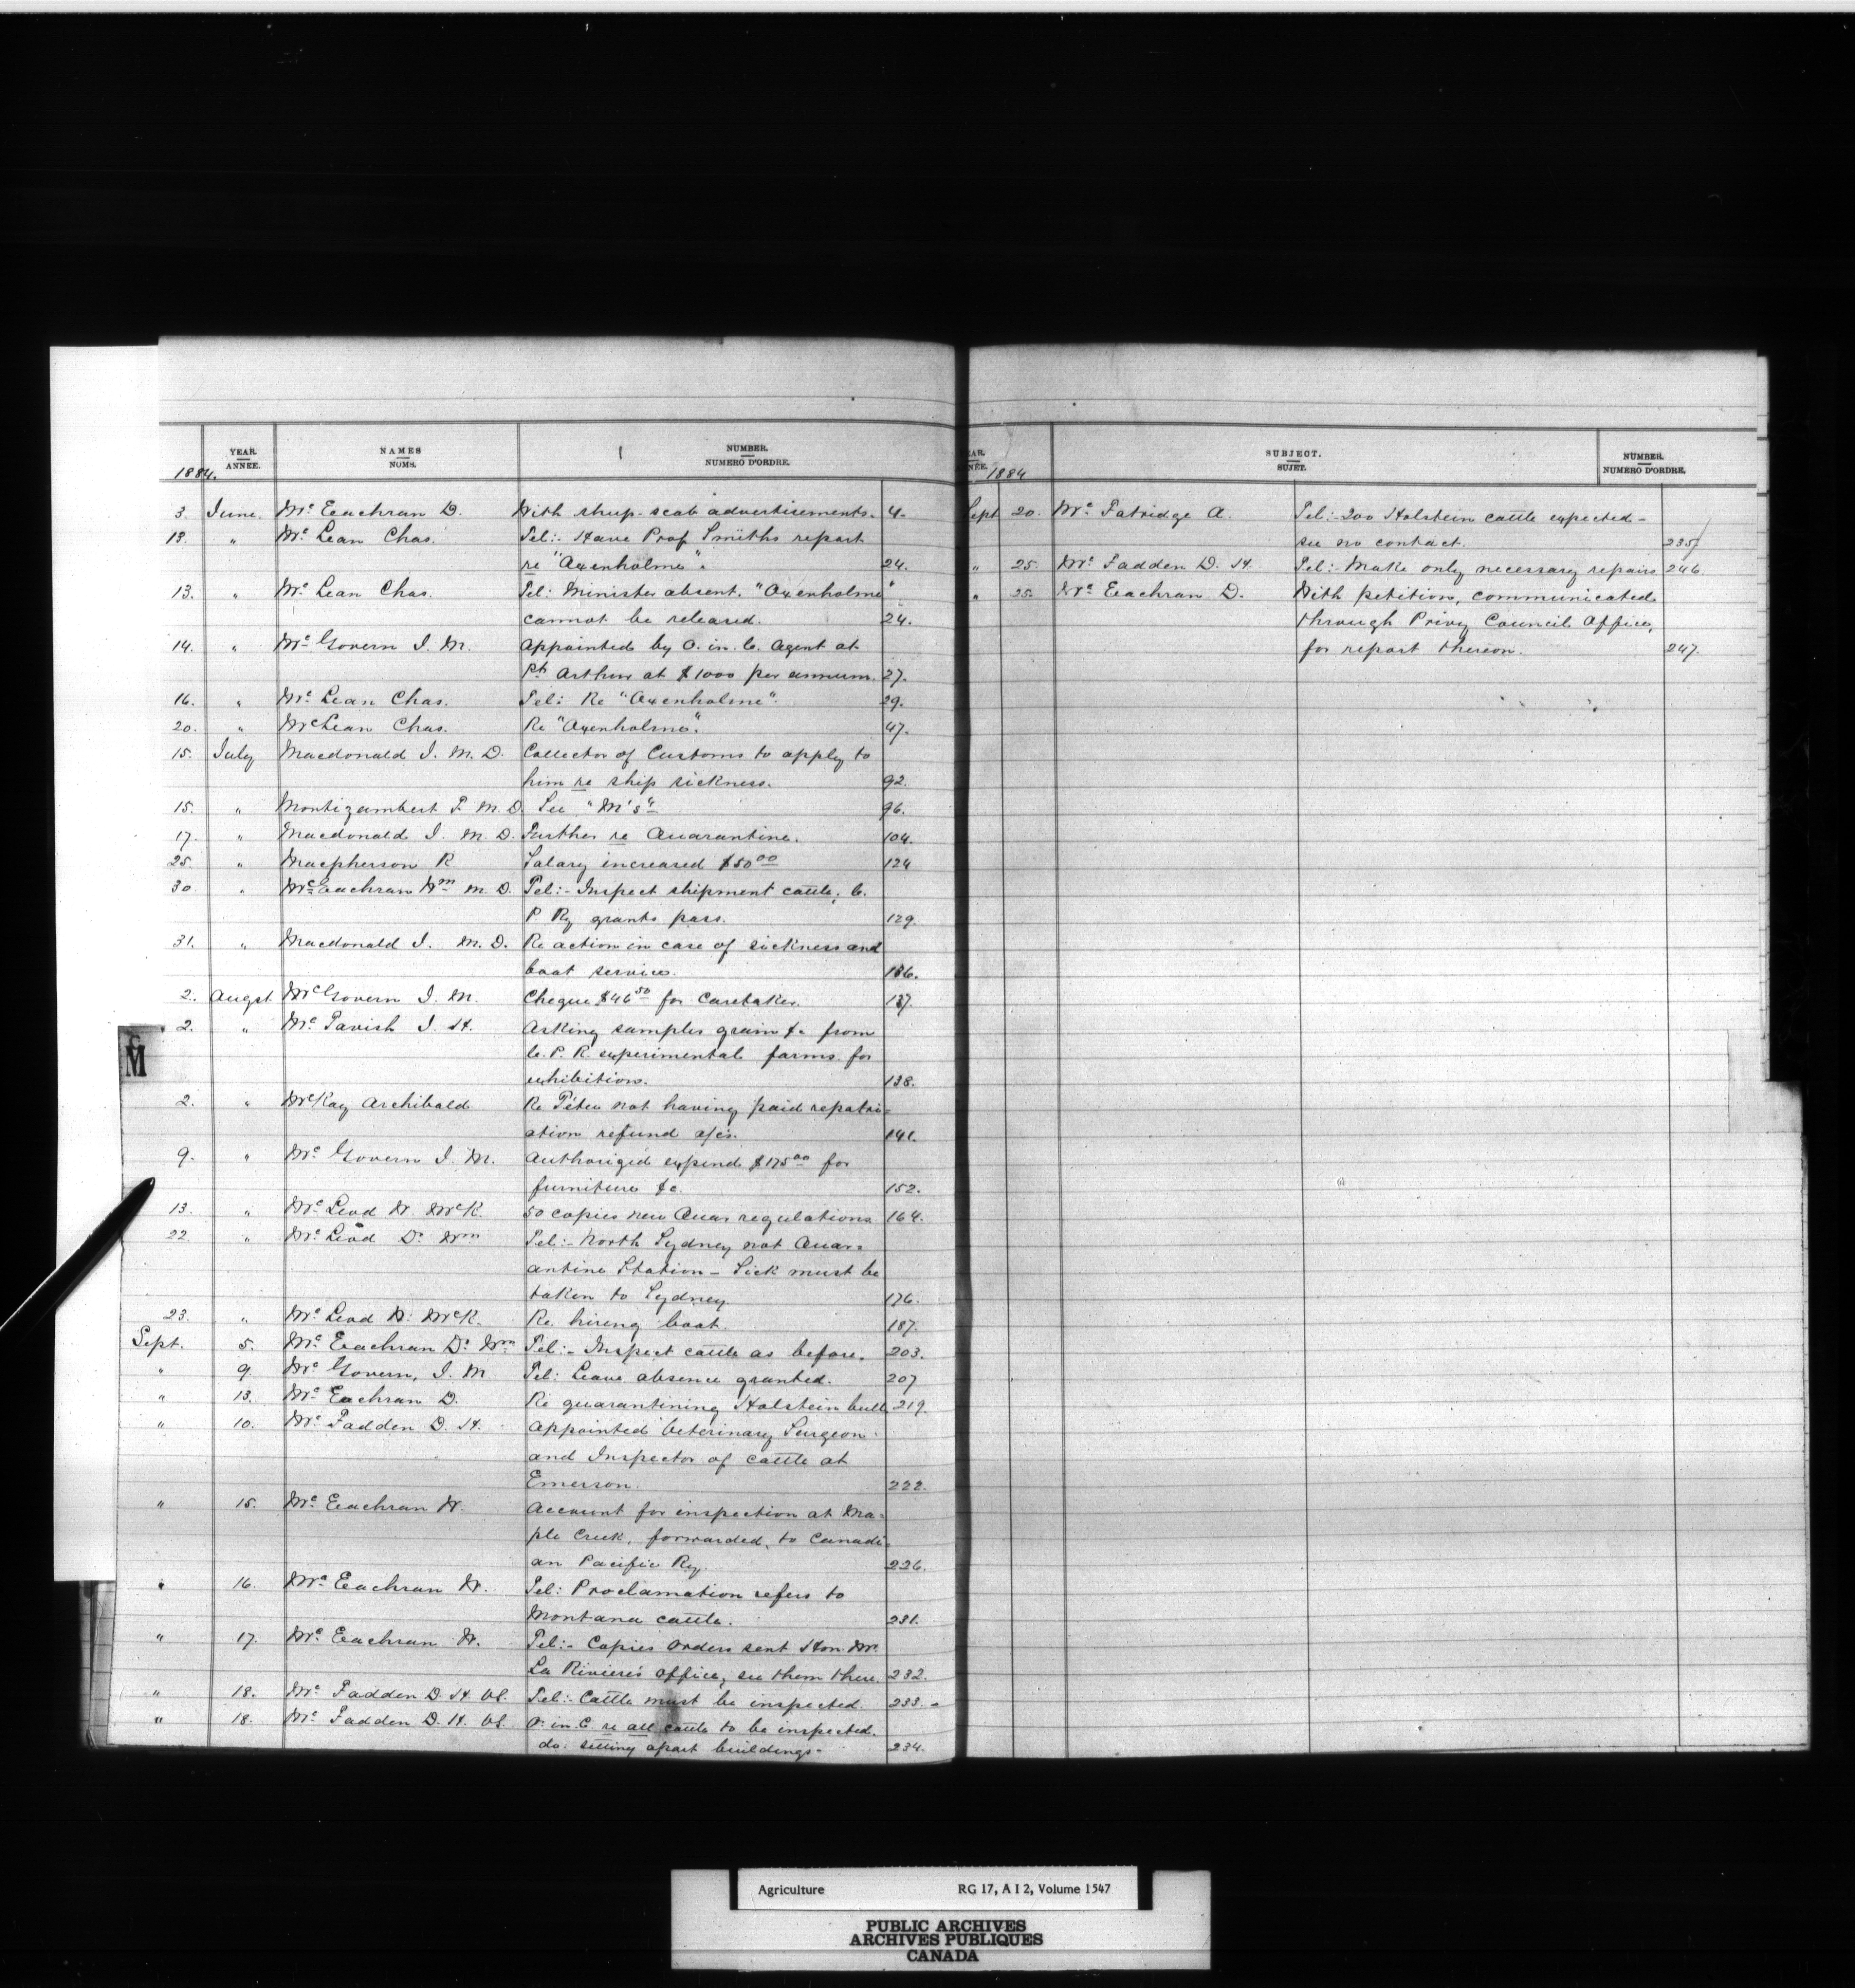 YEAR. ANNÉE. NAMES NOMS. NUMBER. NUMERO D'ORDRE.
1884.
3. June. Mc Eachran D. With sheep-scab advertisements. 4.
13. " Mc Lean Chas. Tel:- Have Prof Smiths report
re "Oxenholme". 24.
13. " Mc Lean Chas. Tel: Minister absent. "Oxenholme"
cannot be released. 24.
14. " Mc Govern J. M. Appointed by O. in. C. Agent at
Pt Arthur at $1000 per annum. 27.
16. " Mc Lean Chas. Tel: Re "Oxenholme". 29.
20. " McLean Chas. Re "Oxenholme". 47.
15. July Macdonald J. M. D. Collector of Customs to apply to
him re ship sickness. 92.
15. " Montizambert F. M. D. See "M's" 96.
17. " Macdonald J. M. D. Further re Quarantine. 104.
25. " Macpherson R Salary increased $50 00 124
30. " McEachran Wm M. D. Tel:- Inspect shipment cattle, C.
P. Ry grants pass. 129.
31. " Macdonald J. M. D. Re action in case of sickness and
boat services. 136.
2. Augst. McGovern J. M. Cheque $46 50 for Caretaker. 137.
2. " Mc Tavish J. H. Asking samples grain &c from
C. P. R. experimental farms for
exhibitions. 138.
2. " McKay Archibald Re Peter not having paid repatri=
ation refund a/cs. 141.
9. " Mc Govern J. M. Authorized expend $175 00 for
furniture &c. 152.
13. " Mc Leod W. McK. 50 copies new Quar regulations 164.
22. " Mc Leod Dr Wm Tel:- North Sydney not Quar=
antine Station - Sick must be
taken to Sydney 176.
23. " Mc Leod W. McK. Re. hiring boat. 187.
Sept. 5. Mc Eachran Dr Wm Tel:- Inspect cattle as before. 203.
" 9. Mc Govern, J. M. Tel: Leave absence granted. 207
" 13. Mc Eachran D. Re quarantining Holstein bull 219.
" 10. Mc Fadden D. H. Appointed Veterinary Surgeon
and Inspector of cattle at
Emerson. 222.
" 15. Mc Eachran W. Account for inspection at Ma=
ple Creek, forwarded, to Canadi=
an Pacific Ry. 226.
" 16. Mc Eachran W. Tel: Proclamation refers to
Montana cattle. 231.
" 17. Mc Eachran W. Tel:- Copies orders sent Hon Mr
La Riviere's office, see them there. 232.
" 18. Mc Fadden D. H. VS. Tel:- Cattle must be inspected. 233.
" 18. Mc Fadden D. H. VS. O. in. C. re all cattle to be inspected.
do. setting apart buildings. 234.
M
AR. NÉE. SUBJECT. SUJET. NUMBER. NUMERO D'ORDRE.
1884
Sept 20. Mc Fatridge A. Tel:- 200 Holstein cattle expected -
see no contact. 235
" 25. Mc Fadden D. H. Tel:- Make only necessary repairs 246.
" 25. Mc Eachran D. With petition, communicated
through Privy Council Office,
for report thereon. 247.
Agriculture RG 17, A I 2, Volume 1547
PUBLIC ARCHIVES
ARCHIVES PUBLIQUES
CANADA